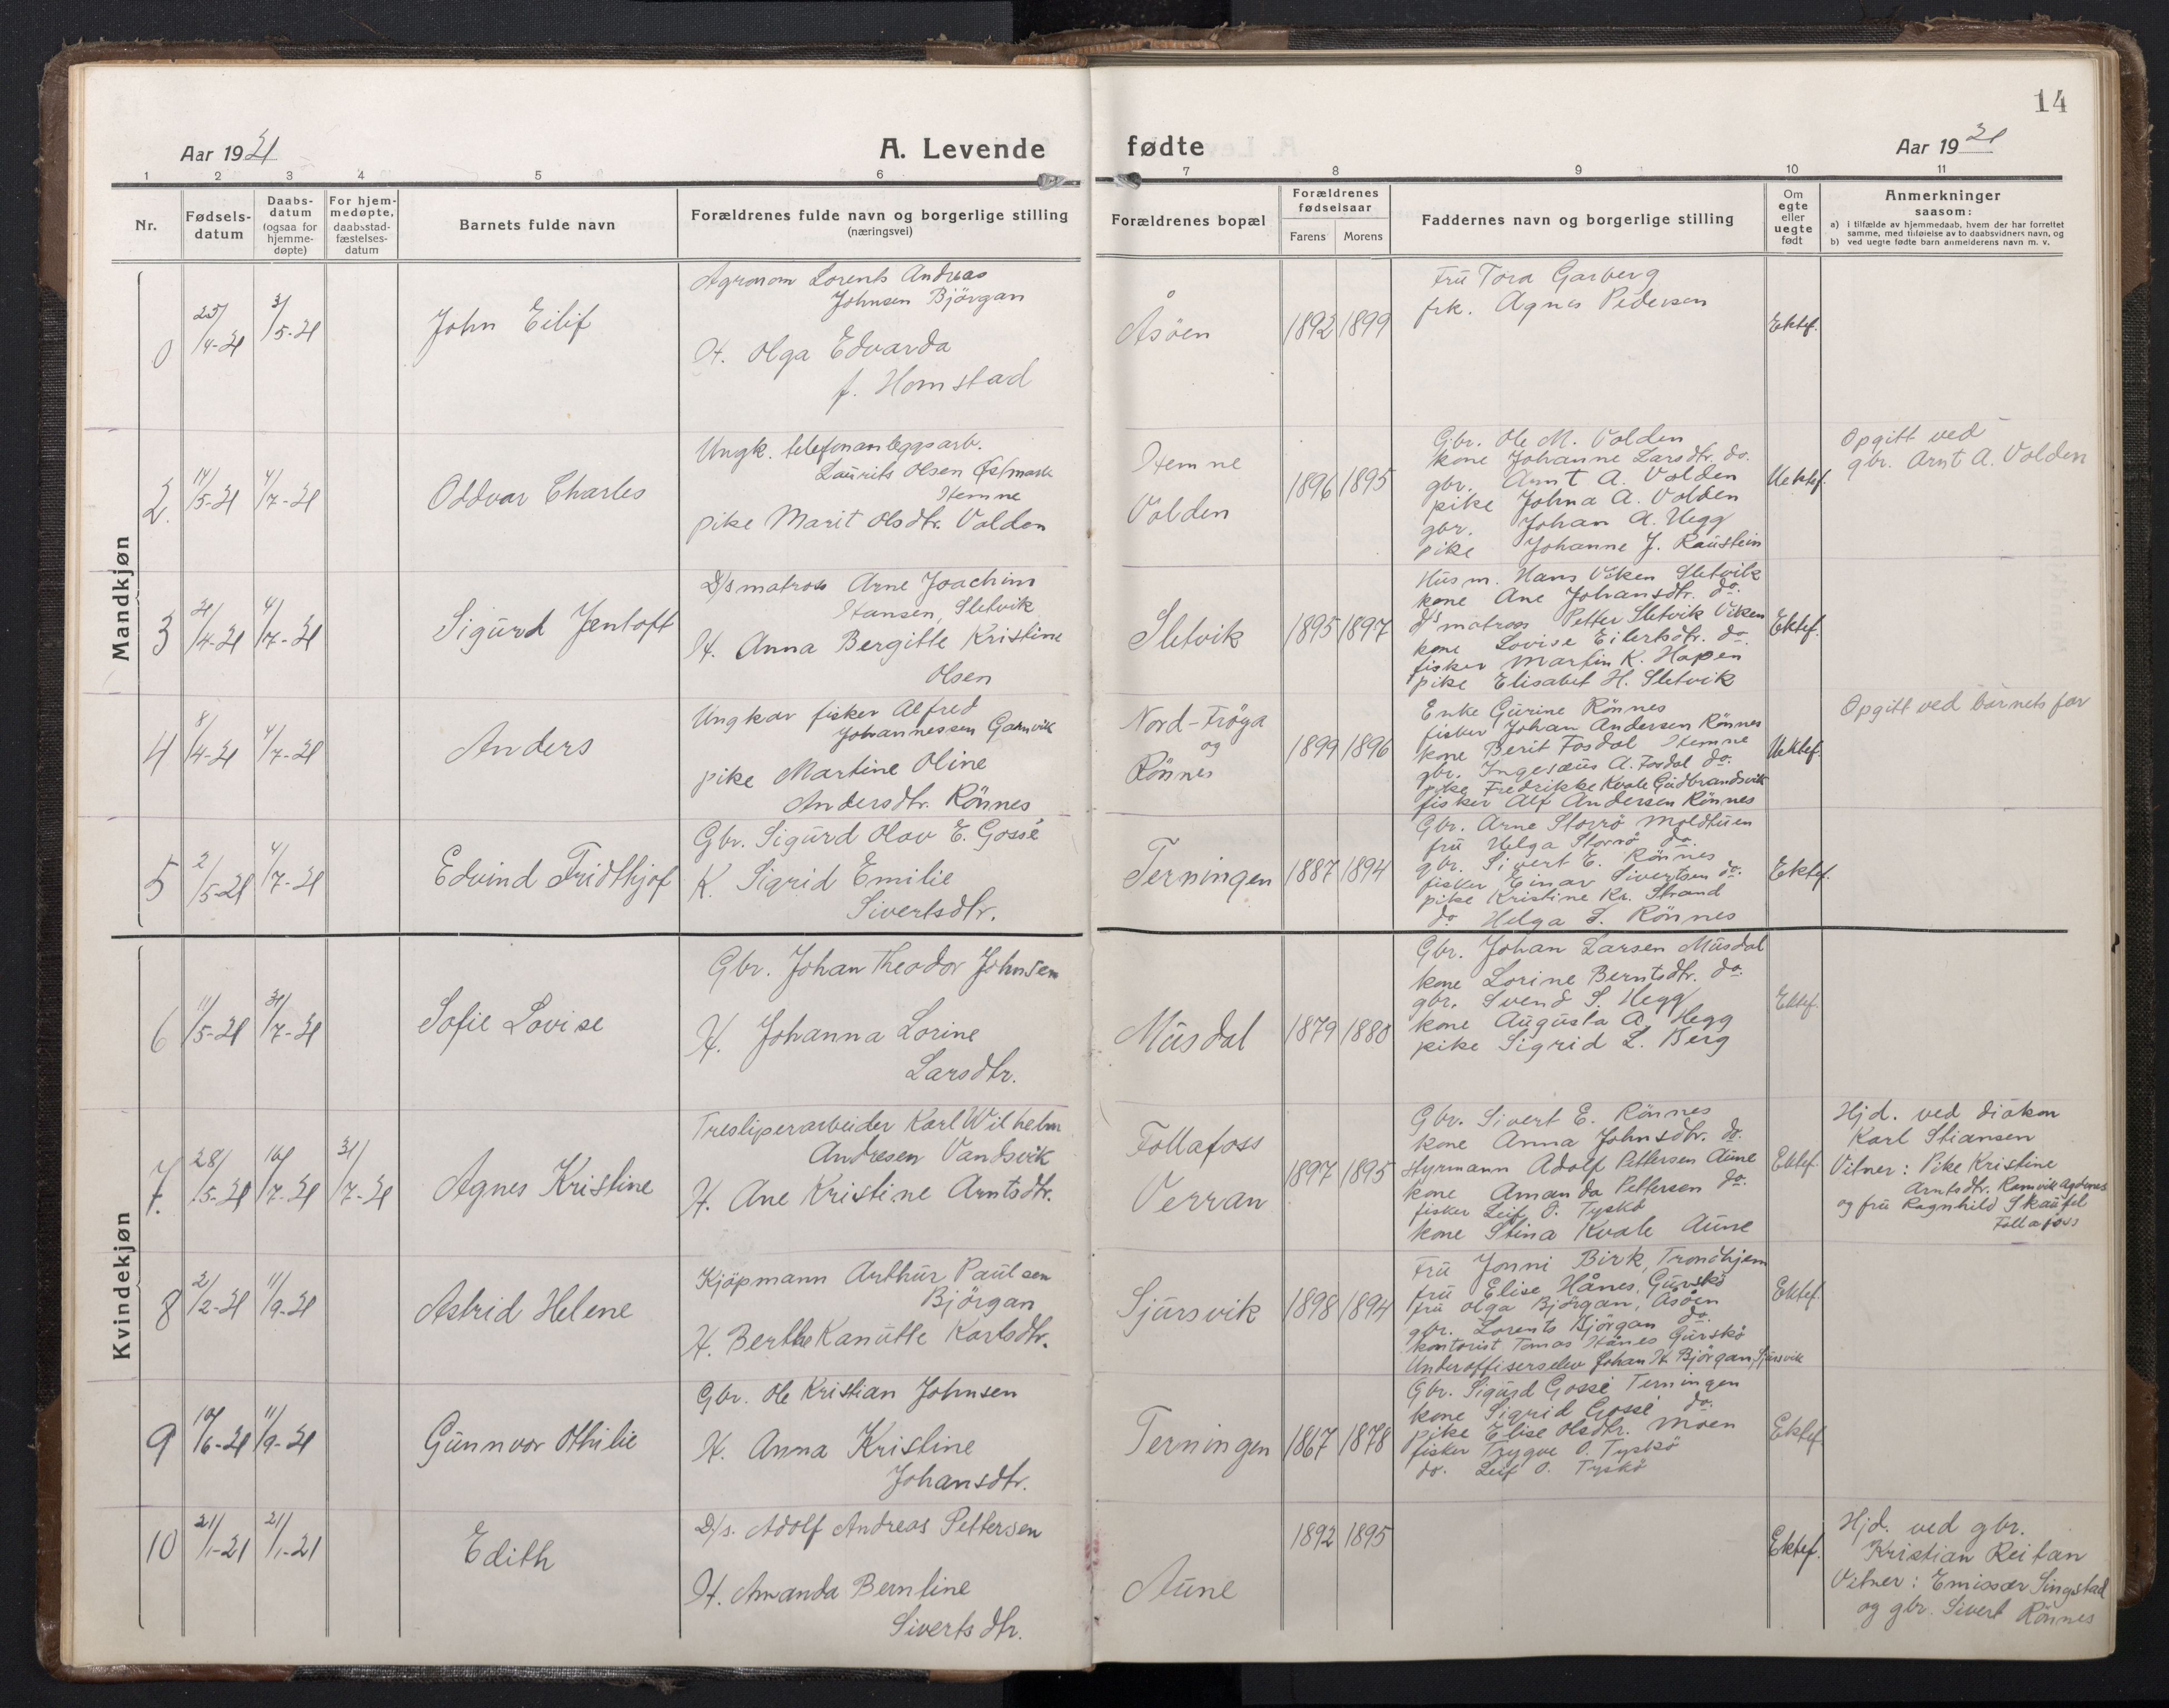 14
Aar 1921
A. Levende
fødte
Aar 1921
1 2 3 4 5 6 7 8 9 10 11
Nr.
Fødsels-
datum
Daabs-
datum
(ogsaa for
hjemme-
døpte)
For hjem-
medøpte,
daabsstad-
fæstelses-
datum
Barnets fulde navn
Forældrenes fulde navn og borgerlige stilling
(næringsvei)
Forældrenes bopæl
Forældrenes
fødselsaar
Farens Morens
Faddernes navn og borgerlige stilling
Om
egte
eller
uegte
født
Anmerkninger
saasom:
a) i tilfælde av hjemmedaab, hvem der har forrettet
samme, med tilføielse av to daabsvidners navn, og
b) ved uegte fødte barn anmelderens navn m. v.
Mandkjøn
25/4-21 3/5-21
John Eilif
Agronom Lorents Andreas
Johnsen Björgan
H. Olga Edvarda
f. Homstad
Åsöen
1892 1899
Fru Tora Garberg
frk. Agnes Pedersen
Ektef.
2. 17/5-21 4/7-21
Oddvar Charles
Ungk. telefonanleggsarb.
Laurits Olsen Østmark
Hemne
pike Marit Olsdtr. Volden
Hemne
Volden
1896 1895
Gbr. Ole M. Volden
kone Johanne Larsdtr. do.
gbr. Arnt A. Volden
pike Johna A. Volden
gbr. Johan A. Hegg
pike Johanne J. Raustein
Uektef.
Opgitt ved
gbr. Arnt A. Volden
3 21/4-21 4/7-21
Sigurd Jentoft
D/s matros Arne Joachim
Hansen, Sletvik
H. Anna Bergitte Kristine
Olsen
Sletvik
1895 1897
Husm. Hans Viken Sletvik
kone Ane Johansdtr. do.
d/s matros Petter Sletvik Viken
kone Lovise Eilertsdtr. do.
fisker Martin K. Hopen
pike Elisabet H. Sletvik
Ektef.
4 8/4-21 4/7-21
Anders
Ungkar fisker Alfred
Johannessen Gamvik
pike Martine Oline
Andersdtr. Rönnes
Nord-Fröya
og
Rönnes
1899 1896
Enke Gurine Rönnes
fisker Johan Andersen Rönnes
kone Berit Fosdal Hemne
gbr. Ingesæus A. Fosdal do.
pike Fredrikke Kvale Gudbrandsvik
fisker Alf Andersen Rönnes
Uektef.
Opgitt ved barnets far
5 2/5-21 4/7-21
Edvind Fridthjof
Gbr. Sigurd Olav E. Gossé
K. Sigrid Emilie
Sivertsdtr.
Terningen
1887 1894
Gbr. Arne Storrö Moldtuen
fru Helga Storrö do.
gbr. Sivert E. Rönnes
fisker Einar Sivertsen do.
pike Kristine Kr. Strand
do Helga S. Rönnes
Ektef.
Kvindekjøn
6 11/5-21 31/7-21
Sofie Lovise
Gbr. Johan Theodor Johnsen
H. Johanna Lorine
Larsdtr.
Musdal
1879 1880
Gbr. Johan Larsen Musdal
kone Lorine Berntsdtr. do.
gbr. Svend S. Hegg
kone Augusta A Hegg
pike Sigrid L. Berg
Ektef.
7. 28/5-21 10/7-21 31/7-21
Agnes Kristine
Tresliperarbeider Karl Wilhelm
Andresen Vandsvik
H. Ane Kristine Arntsdtr.
Follafoss
Verran
1897 1895
Gbr. Sivert E. Rönnes
kone Anna Johnsdtr. do.
styrmann Adolf Pettersen Aune
kone Amanda Pettersen do.
fisker Leif O. Tyskö
kone Stina Kvale Aune
Ektef.
Hjd. ved diakon
Karl Stiansen
Vitner: Pike Kristine
Arntsdtr. Ramvik Agdenes
og fru Ragnhild Skaufel
Follafoss
8 2/2-21 11/9-21
Astrid Helene
Kjöpmann Arthur Paulsen
Björgan
H. Berthe Kanutte Karlsdtr.
Sjursvik
1898 1894
Fru Jonni Birk, Trondhjem
fru Elise Hånes, Gurskö
fru Olga Björgan, Åsöen
gbr. Lorents Björgan do.
kontorist Tomas Hånes Gurskö
Underoffiserselev Johan H. Björgan, Sjursvik
Ektef.
9 10/6-21 11/9-21
Gunnvor Othilie
Gbr. Ole Kristian Johnsen
H. Anna Kristine
Johansdtr.
Terningen
1867 1878
Gbr. Sigurd Gossé Terningen
kone Sigrid Gossé do.
pike Elise Olsdtr. Moen
fisker Trygve O. Tyskö
do. Leif O. Tyskö
Ektef.
10 21/1-21 21/1-21
Edith
D/s. Adolf Andreas Pettersen
H. Amanda Berntine
Sivertsdtr.
Aune
1892 1895
Ektef.
Hjd. ved gbr.
Kristian Reitan
Vitner: Emissær Singstad
og gbr. Sivert Rönnes